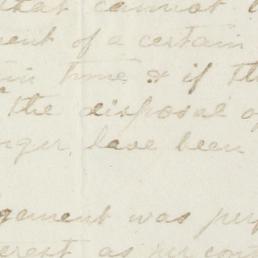 that cannot
ment of a certain
time & if th
the disposal o
nger have been
gement was per
erest as per cont